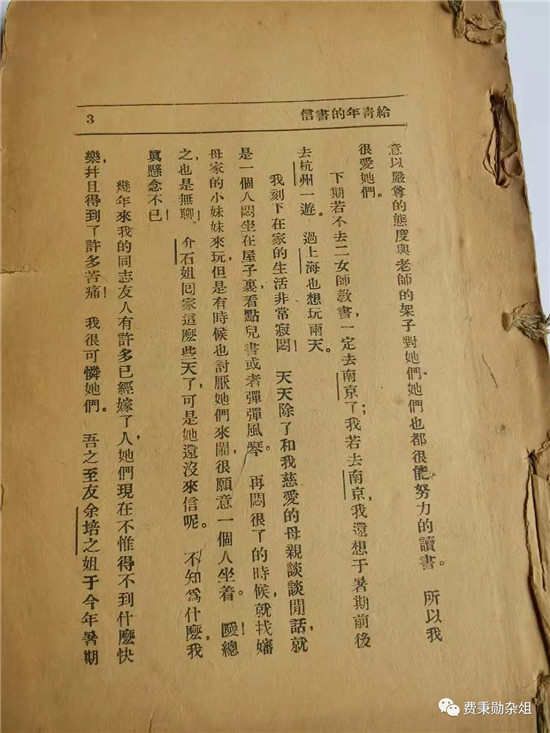 給青年的書信
3
意以嚴尊的態度與老師的架子對她們，她們也都很能努力的讀書。所以我
很愛她們。
下期若不去二女師教書，一定去南京了；我若去南京，我還想于暑期前後
去杭州一遊。過上海也想玩兩天。
我刻下在家的生活非常寂悶！天天除了和我慈愛的母親談談閒話，就
是一個人悶坐在屋子裏看點兒書或者彈彈風琴。再悶很了的時候，就找嬸
母家的小妹妹來玩但是有時候也討厭她們來鬧，很願意一個人坐着。噯！總
之，也是無聊！介石姐囘家這麽些天了，可是她還沒來信呢。不知爲什麽，我
眞懸念不已！
幾年來我的同志友人有許多已經嫁了人，她們現在不惟得不到什麽快
樂，幷且得到了許多苦痛！我很可憐她們。吾之至友余培之姐于今年暑期
费秉勋杂俎